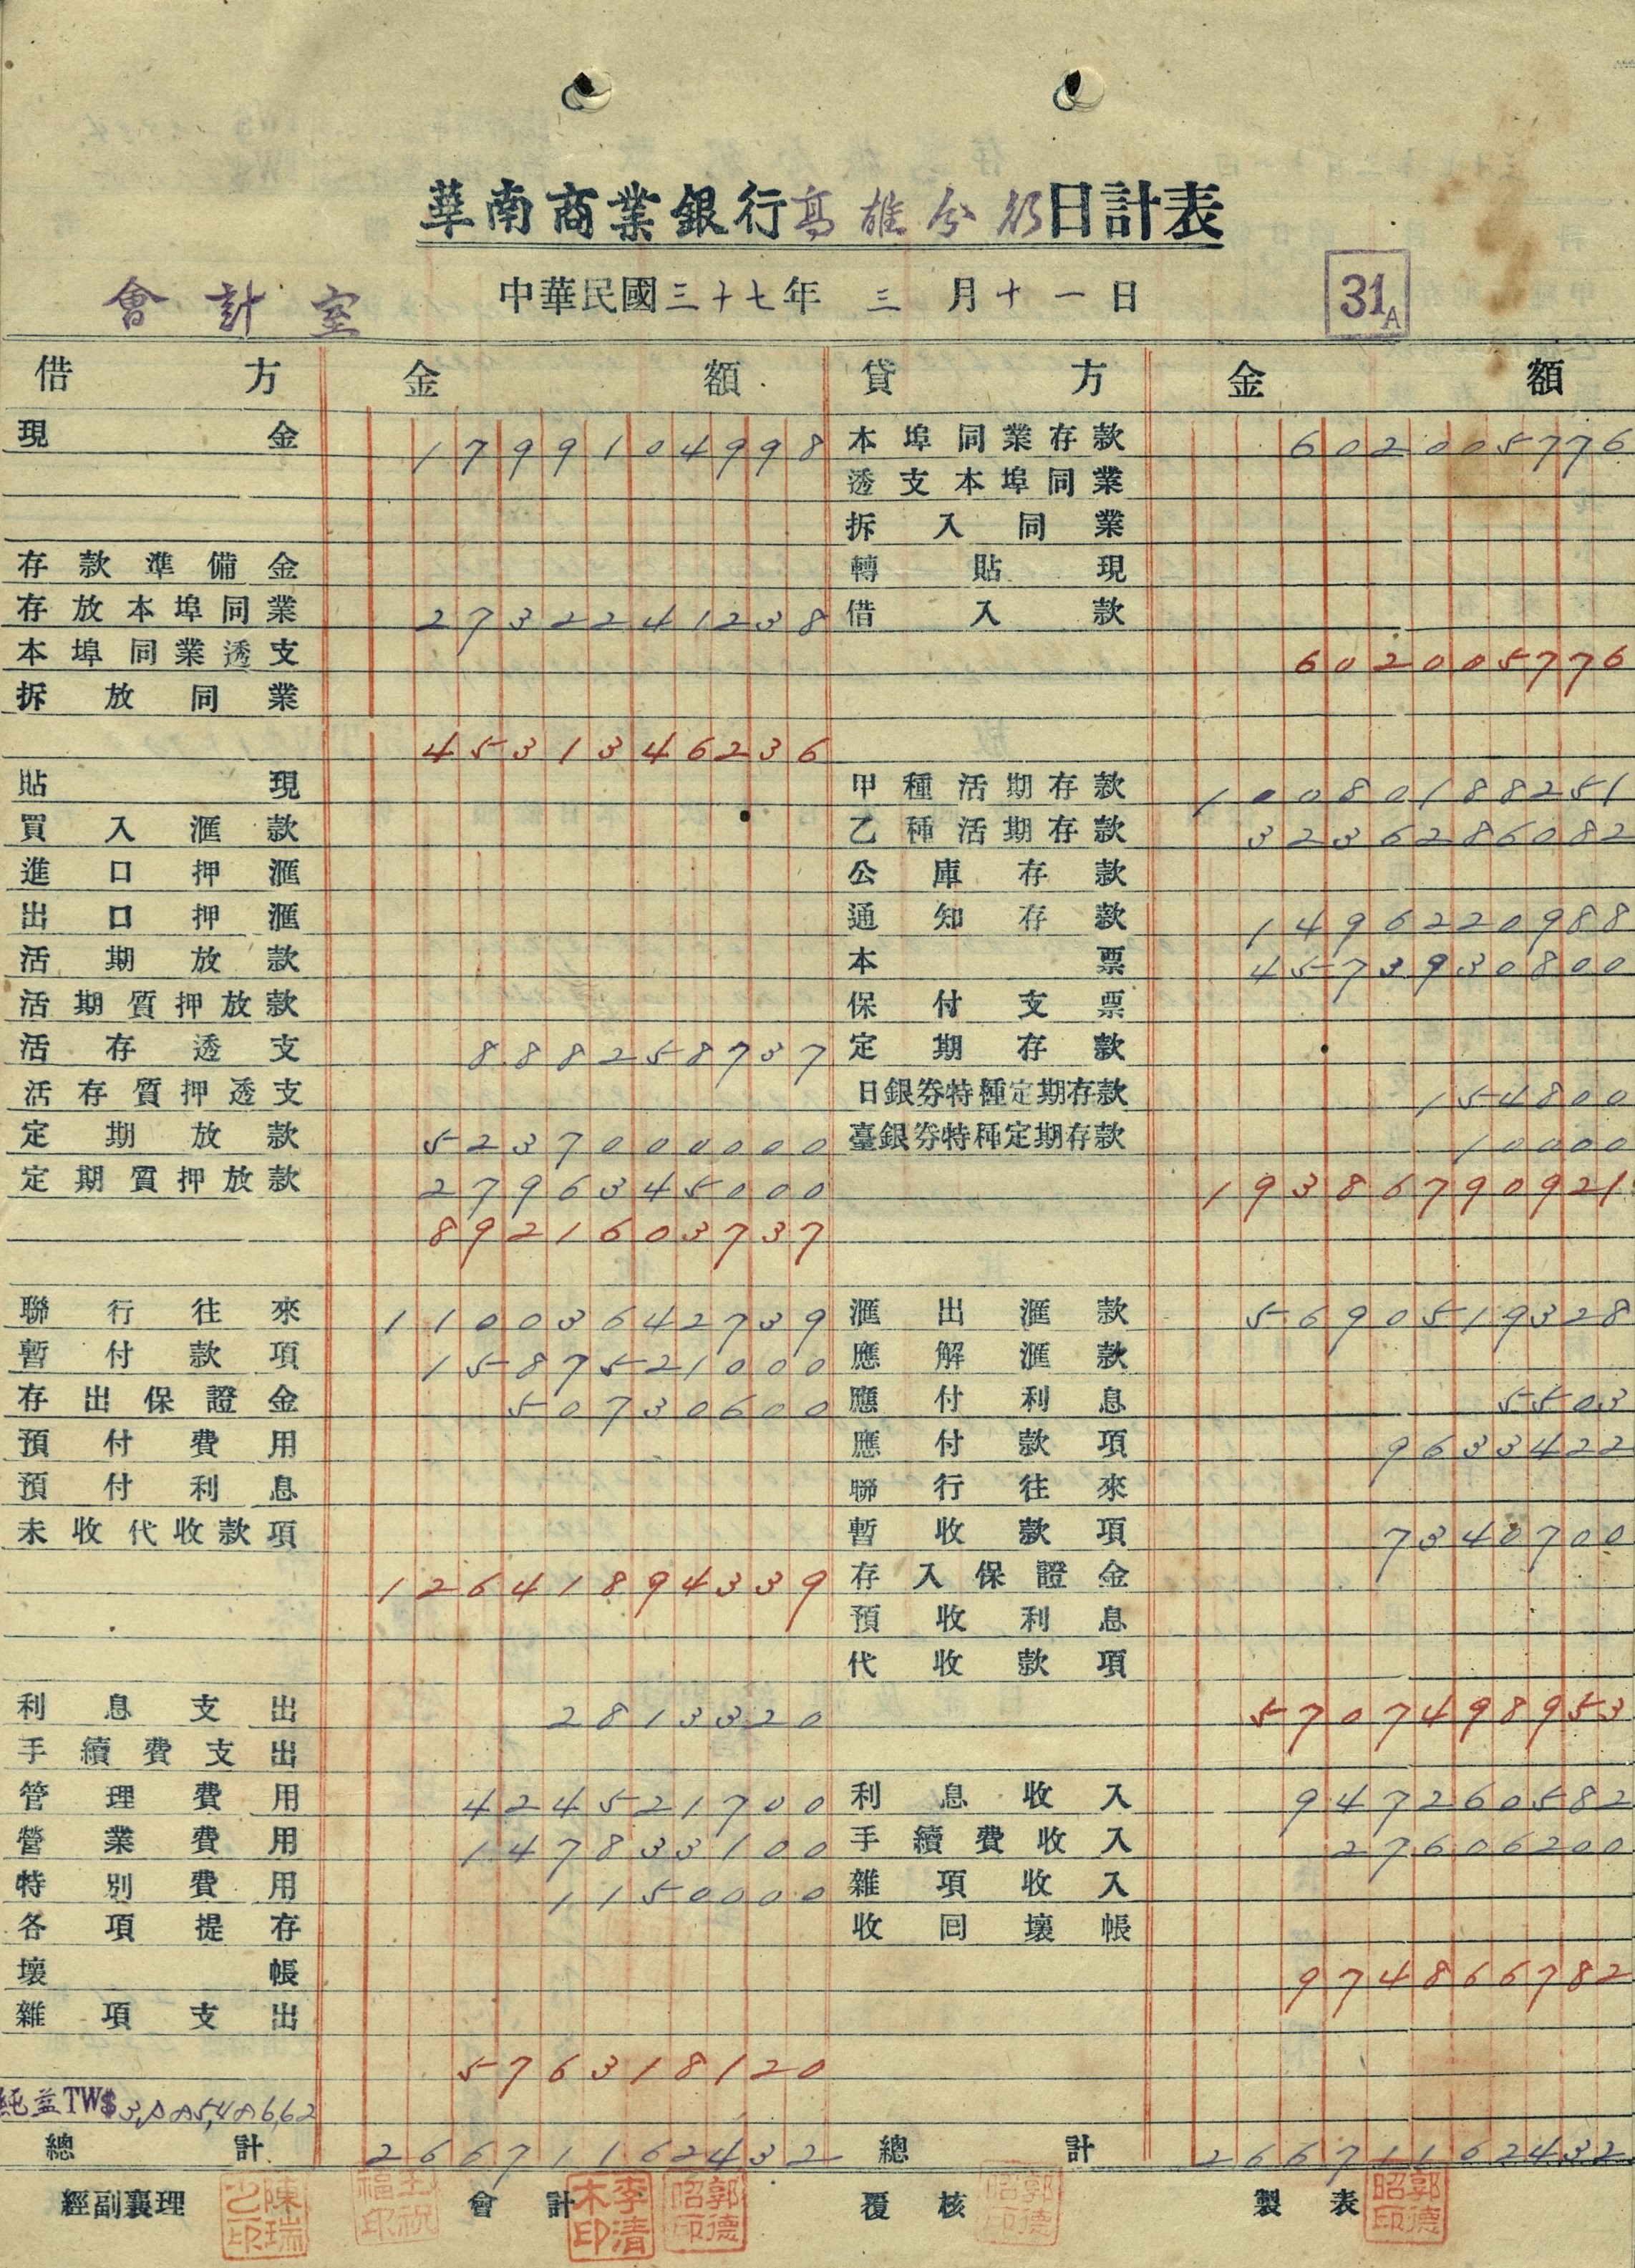 華南商業銀行高雄分行日計表
會計室 中華民國三十七年 三 月 十一 日 31A
借方 金額 貸方 金額
現金 1799104998 本埠同業存款 602005776
透支本埠同業
拆入同業
存款準備金 轉貼現
存放本埠同業 2732241238 借入款
本埠同業透支 602005776
拆放同業
4531346236
貼現 甲種活期存款 10080188251
買入滙款 乙種活期存款 3236286082
進口押滙 公庫存款
出口押滙 通知存款 1496220988
活期放款 本票 4573930800
活期質押放款 保付支票
活存透支 888258737 定期存款
活存質押透支 日銀劵特種定期存款 154800
定期放款 5237000000 臺銀劵特種定期存款 10000
定期質押放款 2796345000 19386790921
8921603737
聯行往來 11003642739 滙出滙款 5690519328
暫付款項 1587521000 應解滙款
存出保證金 50730600 應付利息 5503
預付費用 應付款項 9633422
預付利息 聯行往來
未收代收款項 暫收款項 7340700
12641894339 存入保證金
預收利息
代收款項
利息支出 2813320 5707498953
手續費支出
管理費用 424521700 利息收入 947260582
營業費用 147833100 手續費收入 27606200
特別費用 1150000 雜項收入
各項提存 收回壞帳
壞帳 974866782
雜項支出
576318120
純益TW$3,985,486.62
總計 26671162432 總計 26671162432
經副襄理 陳瑞之印 王祝福印 會計 李清木印 郭德昭印 覆核 郭德昭印 製表 郭德昭印